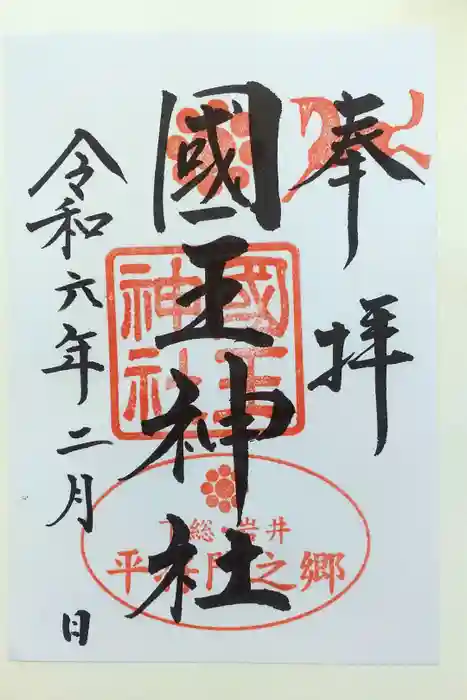 奉拝
國王神社
令和六年二月 日
國王神社
下総・岩井
平将門之郷